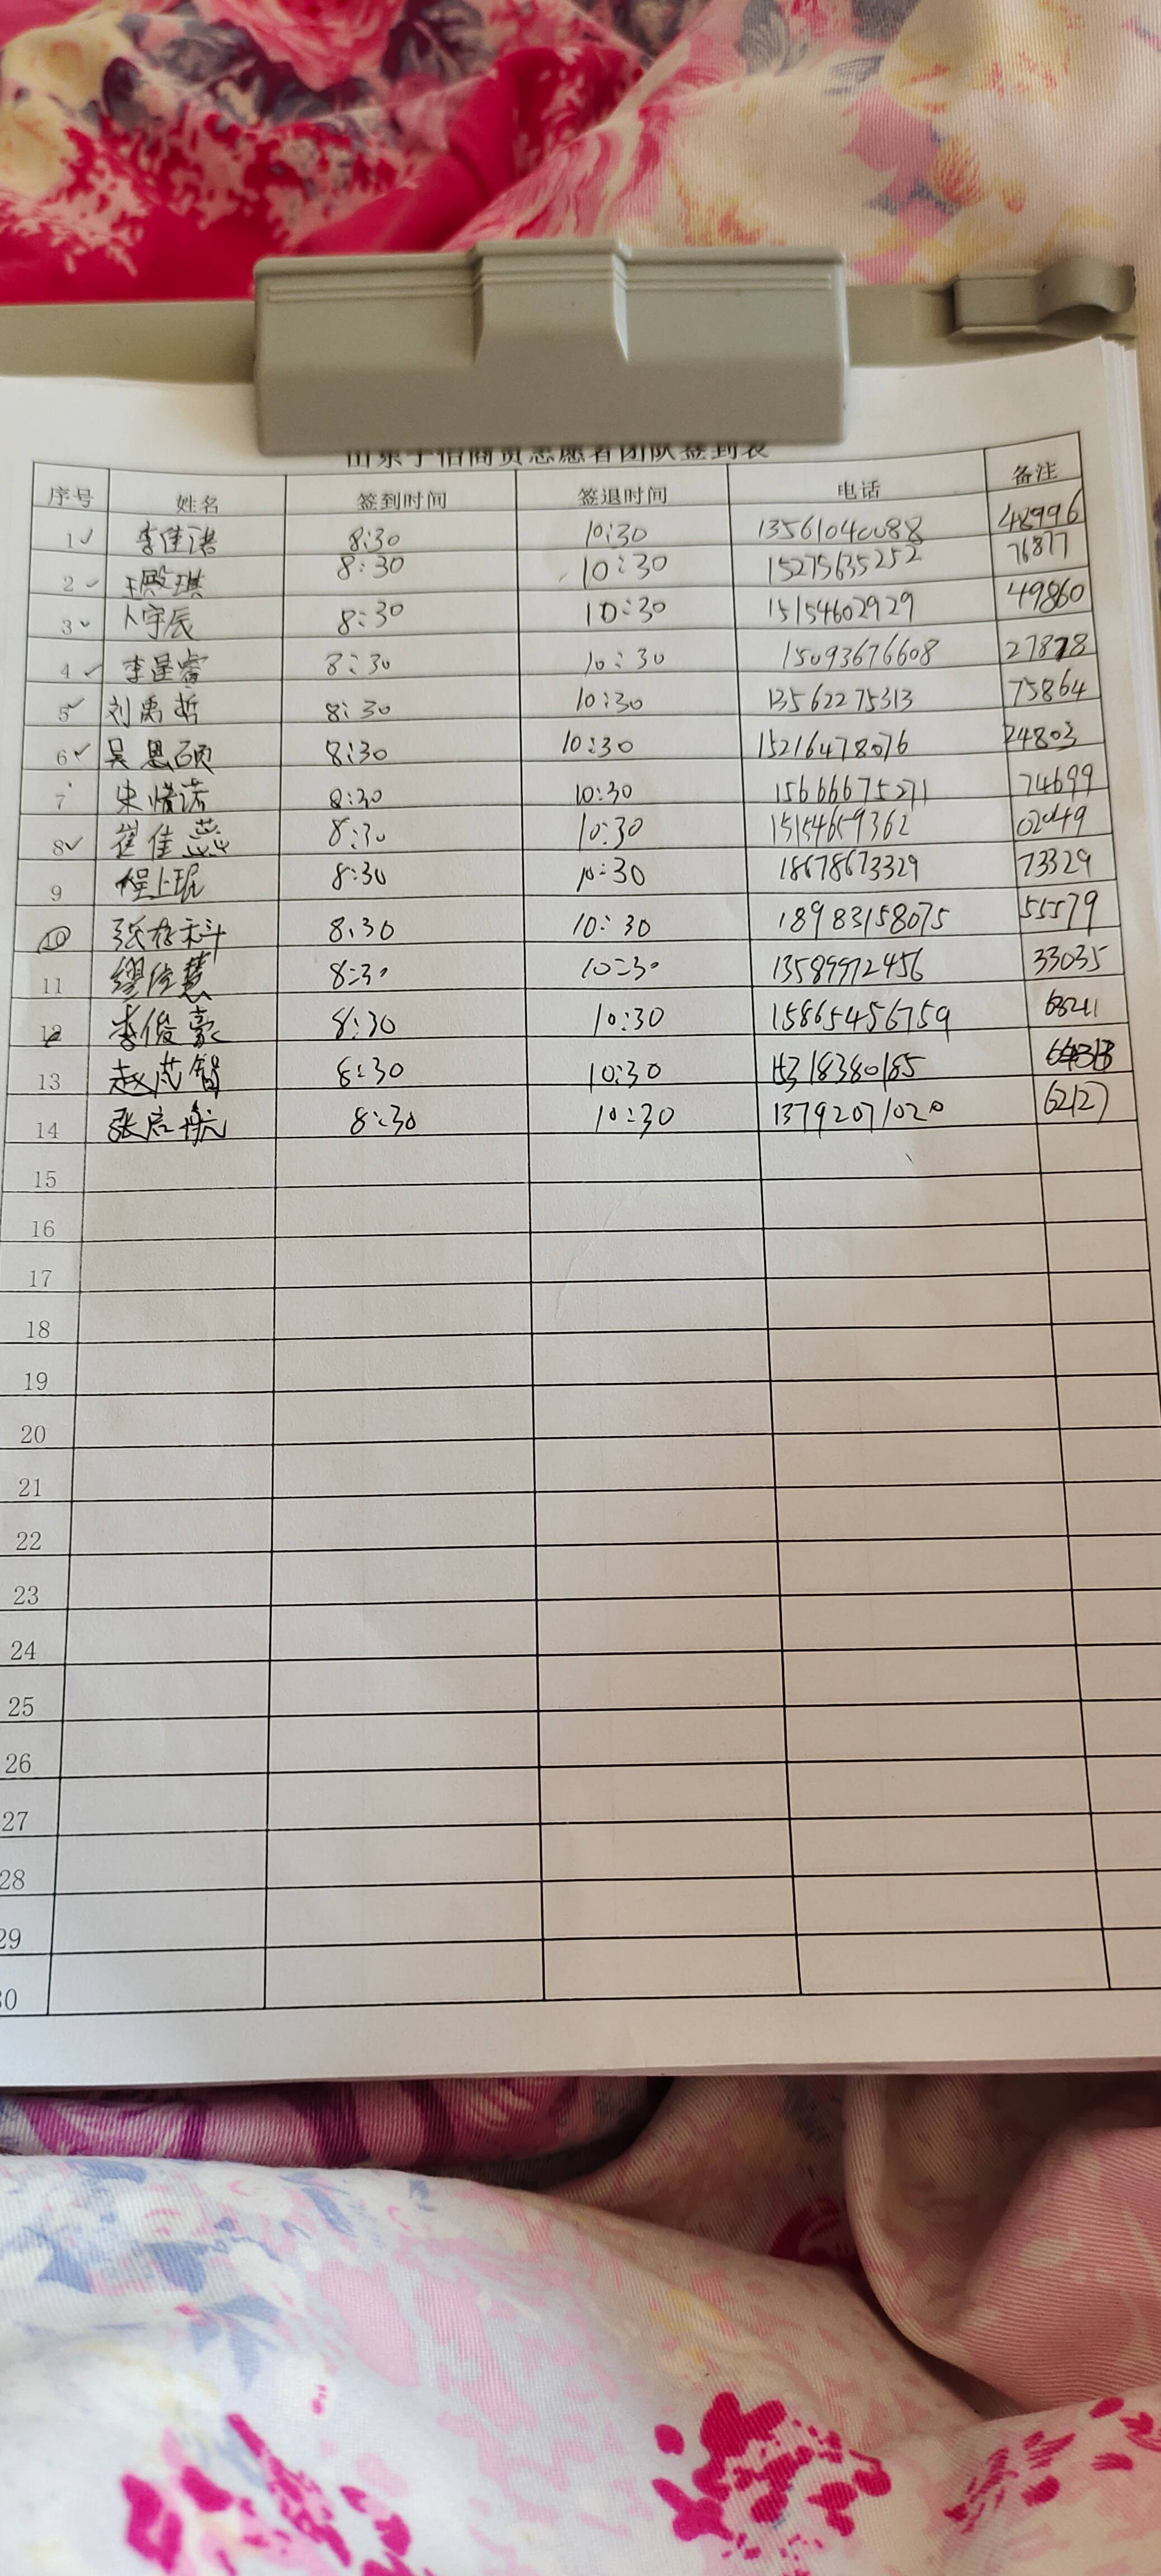 志愿者团队签到表
序号 姓名 签到时间 签退时间 电话 备注
1 李佳诺 8:30 10:30 13561040088 48996
2 王殿琪 8:30 10:30 15275635252 76877
3 卜宇辰 8:30 10:30 15154602929 49860
4 李星睿 8:30 10:30 15093676608 27878
5 刘禹哲 8:30 10:30 13562275313 75864
6 吴恩硕 8:30 10:30 15216478076 24803
7 史惜诺 8:30 10:30 15666675271 74699
8 崔佳蕊 8:30 10:30 15154659362 02049
9 程上琨 8:30 10:30 18678673329 73329
10 8:30 10:30 18983158075 55579
11 缪佳慧 8:30 10:30 13589972456 33035
12 李俊豪 8:30 10:30 15865456759 68241
13 赵芃智 8:30 10:30 15318380185
14 张启航 8:30 10:30 13792071020 62127
15
16
17
18
19
20
21
22
23
24
25
26
27
28
29
30